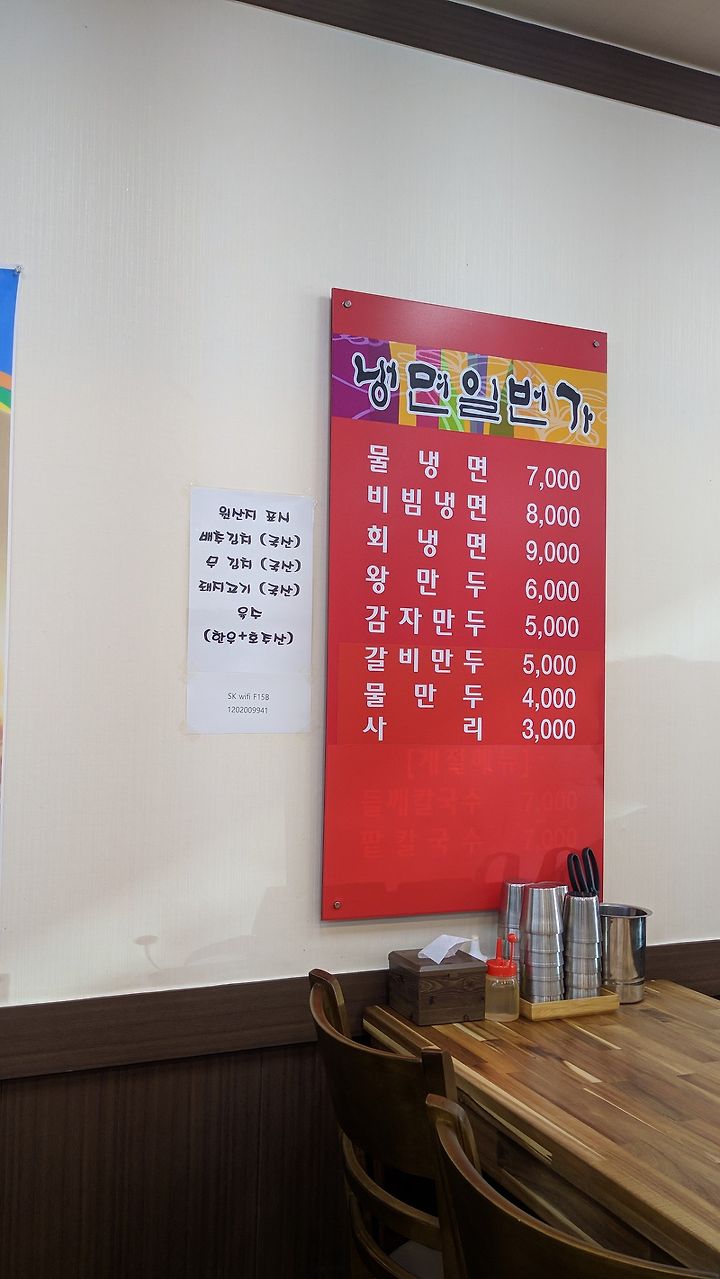 냉면일번가
물 냉 면 7,000
비 빔 냉 면 8,000
회 냉 면 9,000
왕 만 두 6,000
감 자 만 두 5,000
갈 비 만 두 5,000
물 만 두 4,000
사 리 3,000
[계절메뉴]
들깨칼국수 7,000
팥칼국수 7,000
원산지 표시
배추김치 (국산)
무 김치 (국산)
돼지고기 (국산)
육수
(한우+호주산)
SK wifi F15B
1202009941